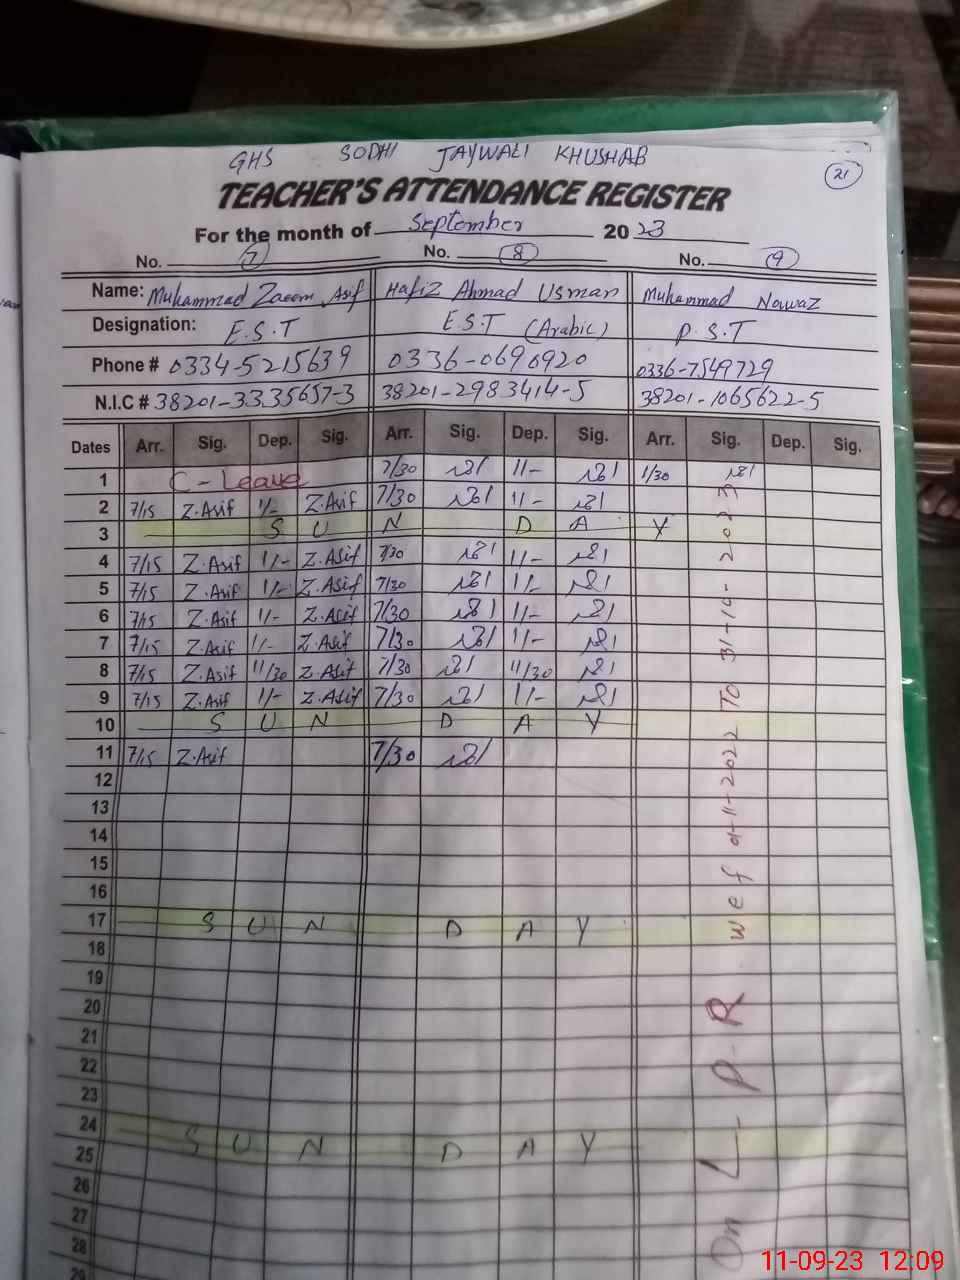 GHS SODHI JAYWALI KHUSHAB
21
TEACHER'S ATTENDANCE REGISTER
For the month of September 2023
No. 7 No. 8 No. 9
Name: Muhammad Zaeem Asif Hafiz Ahmad Usman Muhammad Nawaz
Designation: E.S.T E.S.T (Arabic) P.S.T
Phone # 0334-5215639 0336-0690920 0336-7549729
N.I.C # 38201-3335657-3 38201-2983414-5 38201-1065622-5
Dates Arr. Sig. Dep. Sig. Arr. Sig. Dep. Sig. Arr. Sig. Dep. Sig.
1 C-Leave 7/30 11/- 1/30
2 7/15 Z.Asif 1/- Z.Asif 7/30 11/-
3 S U N D A Y
4 7/15 Z.Asif 1/- Z.Asif 7/30 11/-
5 7/15 Z.Asif 1/- Z.Asif 7/30 11/-
6 7/15 Z.Asif 1/- Z.Asif 7/30 11/-
7 7/15 Z.Asif 1/- Z.Asif 7/30 11/-
8 7/15 Z.Asif 11/30 Z.Asif 7/30 11/30
9 7/15 Z.Asif 1/- Z.Asif 7/30 11/-
10 S U N D A Y
11 7/15 Z.Asif 7/30
12
13
14
15
16
17 S U N D A Y
18
19
20
21
22
23
24 S U N D A Y
25
26
27
28
29
On L-P-R wef 01-11-2022 To 31-10-2023
11-09-23 12:09